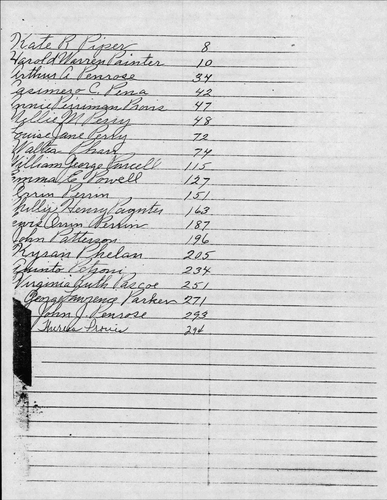 Kate R. Piper 8
Harold Warren Painter 10
Arthur A. Penrose 34
Casimezo C. Pena 42
Annie Perriman 47
Nellie M. Perry 48
Louise Jane Perry 72
Walter Pharr 74
William George Powell 115
Emma E. Powell 127
Orrin Perrin 151
Henry Paynter 163
Lewis Orrin Perrin 187
John Patterson 196
Kyran Phelan 205
Quinto Petroni 234
Virginia Ruth Pascoe 251
George Lawrence Parker 271
John J. Penrose 293
Theresa 294